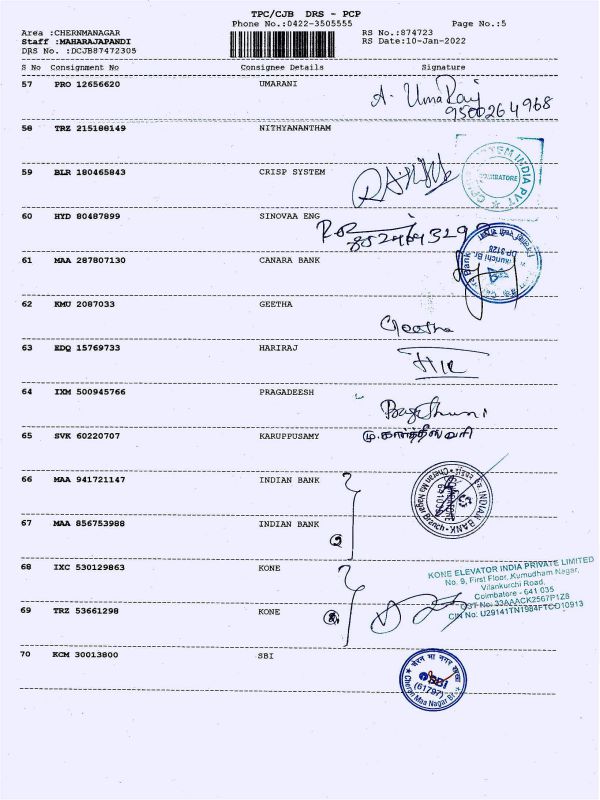 TPC/CJB DRS - PCP
Phone No.:0422-3505555 Page No.:5
Area :CHERNMANAGAR RS No.:874723
Staff :MAHARAJAPANDI RS Date:10-Jan-2022
DRS No. :DCJB87472305
S No Consignment No Consignee Details Signature
57 PRO 12656620 UMARANI
A. UmaRaj
9500264968
58 TRZ 215188149 NITHYANANTHAM
59 BLR 180465843 CRISP SYSTEM
COIMBATORE
60 HYD 80487899 SINOVAA ENG
61 MAA 287807130 CANARA BANK
DP 3128
62 KMU 2087033 GEETHA
Geetha
63 EDQ 15769733 HARIRAJ
64 IXM 500945766 PRAGADEESH
65 SVK 60220707 KARUPPUSAMY
மு.கார்த்தீஸ்வரி
66 MAA 941721147 INDIAN BANK
INDIAN BANK
67 MAA 856753988 INDIAN BANK
2
68 IXC 530129863 KONE
KONE ELEVATOR INDIA PRIVATE LIMITED
No. 9, First Floor, Kumudham Nagar,
Vilankurchi Road,
Coimbatore - 641 035
GST No: 33AAACK2567P1Z8
CIN No: U29141TN1984FTC010913
69 TRZ 53661298 KONE
2
70 KCM 30013800 SBI
चेरन मा नगर शाखा
SBI
(61797)
Cheran Maa Nagar Br.